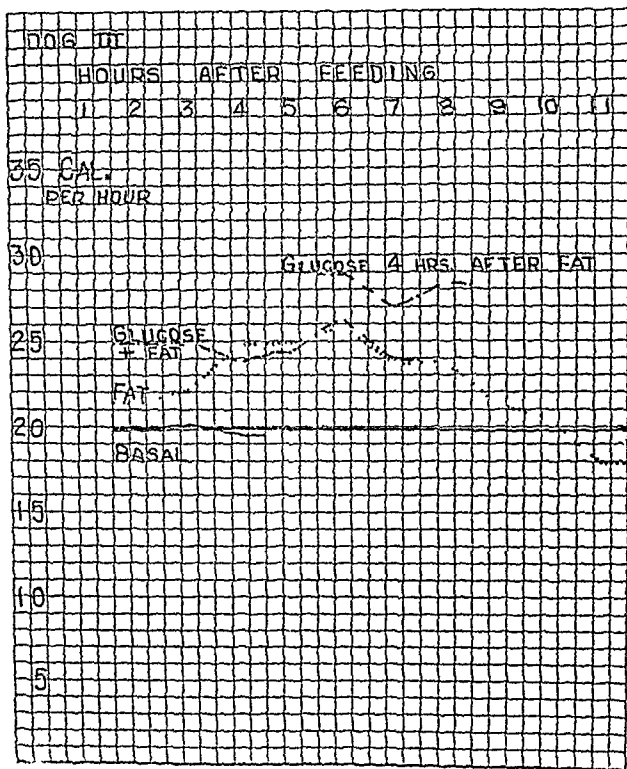 DOG III
HOURS AFTER FEEDING
1 2 3 4 5 6 7 8 9 10 11
35 CAL.
PER HOUR
30
GLUCOSE 4 HRS. AFTER FAT
25
GLUCOSE
+ FAT
FAT
20
BASAL
15
10
5